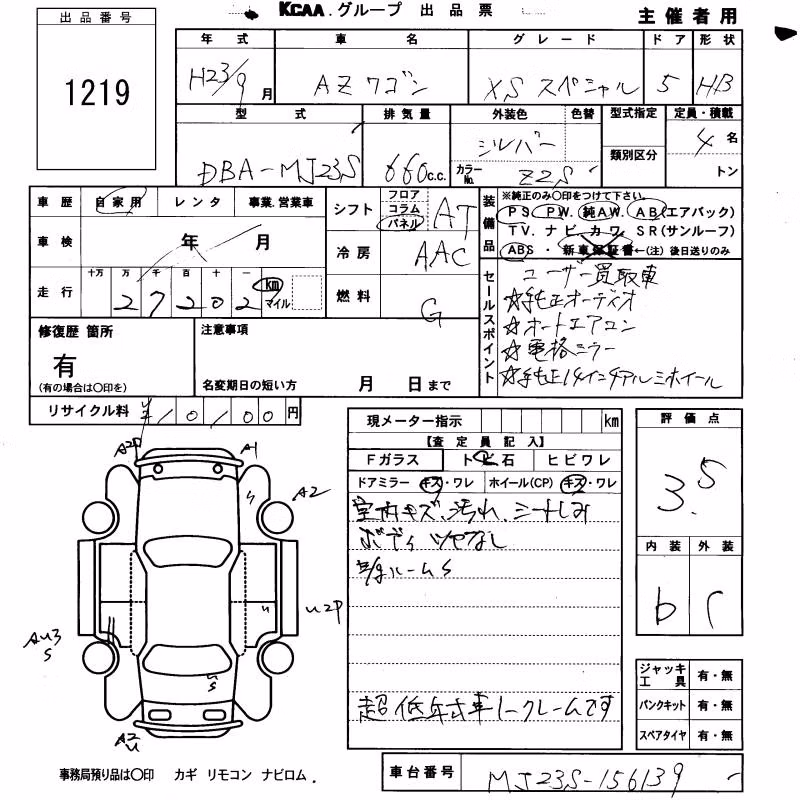 KCAA.グループ 出品票
主催者用
出品番号
1219
年式 車名 グレード ドア 形状
H23/9月 AZワゴン XS スペシャル 5 HB
型式 排気量 外装色 色替 型式指定 定員・積載
DBA-MJ23S 660c.c. シルバー 4名
カラーNo. Z2S 類別区分 トン
車歴 自家用 レンタ 事業.営業車
シフト フロア コラム パネル AT
装備品 ※純正のみ○印をつけて下さい。
PS. PW. 純AW. AB(エアバック)
TV. ナビ カワ SR(サンルーフ)
ABS・新車保証書←(注)後日送りのみ
車検 年 月
冷房 AAC
走行 十万 万 千 百 十 一
27202 km マイル
燃料 G
セールスポイント
ユーザー買取車
☆純正オーディオ
☆オートエアコン
☆電格ミラー
☆純正14インチアルミホイール
修復歴 箇所
有
(有の場合は○印を)
注意事項
名変期日の短い方 月 日まで
リサイクル料 ¥10100円
現メーター指示 km
【査定員記入】
Fガラス トビ石 ヒビワレ
ドアミラー キズ・ワレ ホイール(CP) キズ・ワレ
室内キズ、汚れ、シートしみ
ボディ ツヤなし
ルームS
超低年式車ノークレームです
評価点
3.5
内装 外装
b
ジャッキ工具 有・無
パンクキット 有・無
スペアタイヤ 有・無
A2P A1
A2
U2P
AU3
S
U
S
A2
U
事務局預り品は○印 カギ リモコン ナビロム.
車台番号 MJ23S-156139